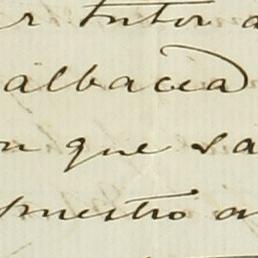 r tutor a
albacea
n que sa
puestro a